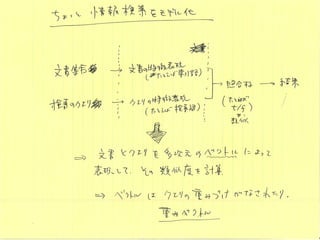 情報検索をモデル化
文書
文書集合 → 文書の特徴表現
(たとえば索引語)
検索のクエリ → クエリの特徴表現
(たとえば検索語)
→ 照合 → 結果
(たとえば
⇒ 文書とクエリを多次元のベクトルによって
表現して、その類似度を計算
→ ベクトルはクエリの重みづけがなされたり、
重みベクトル